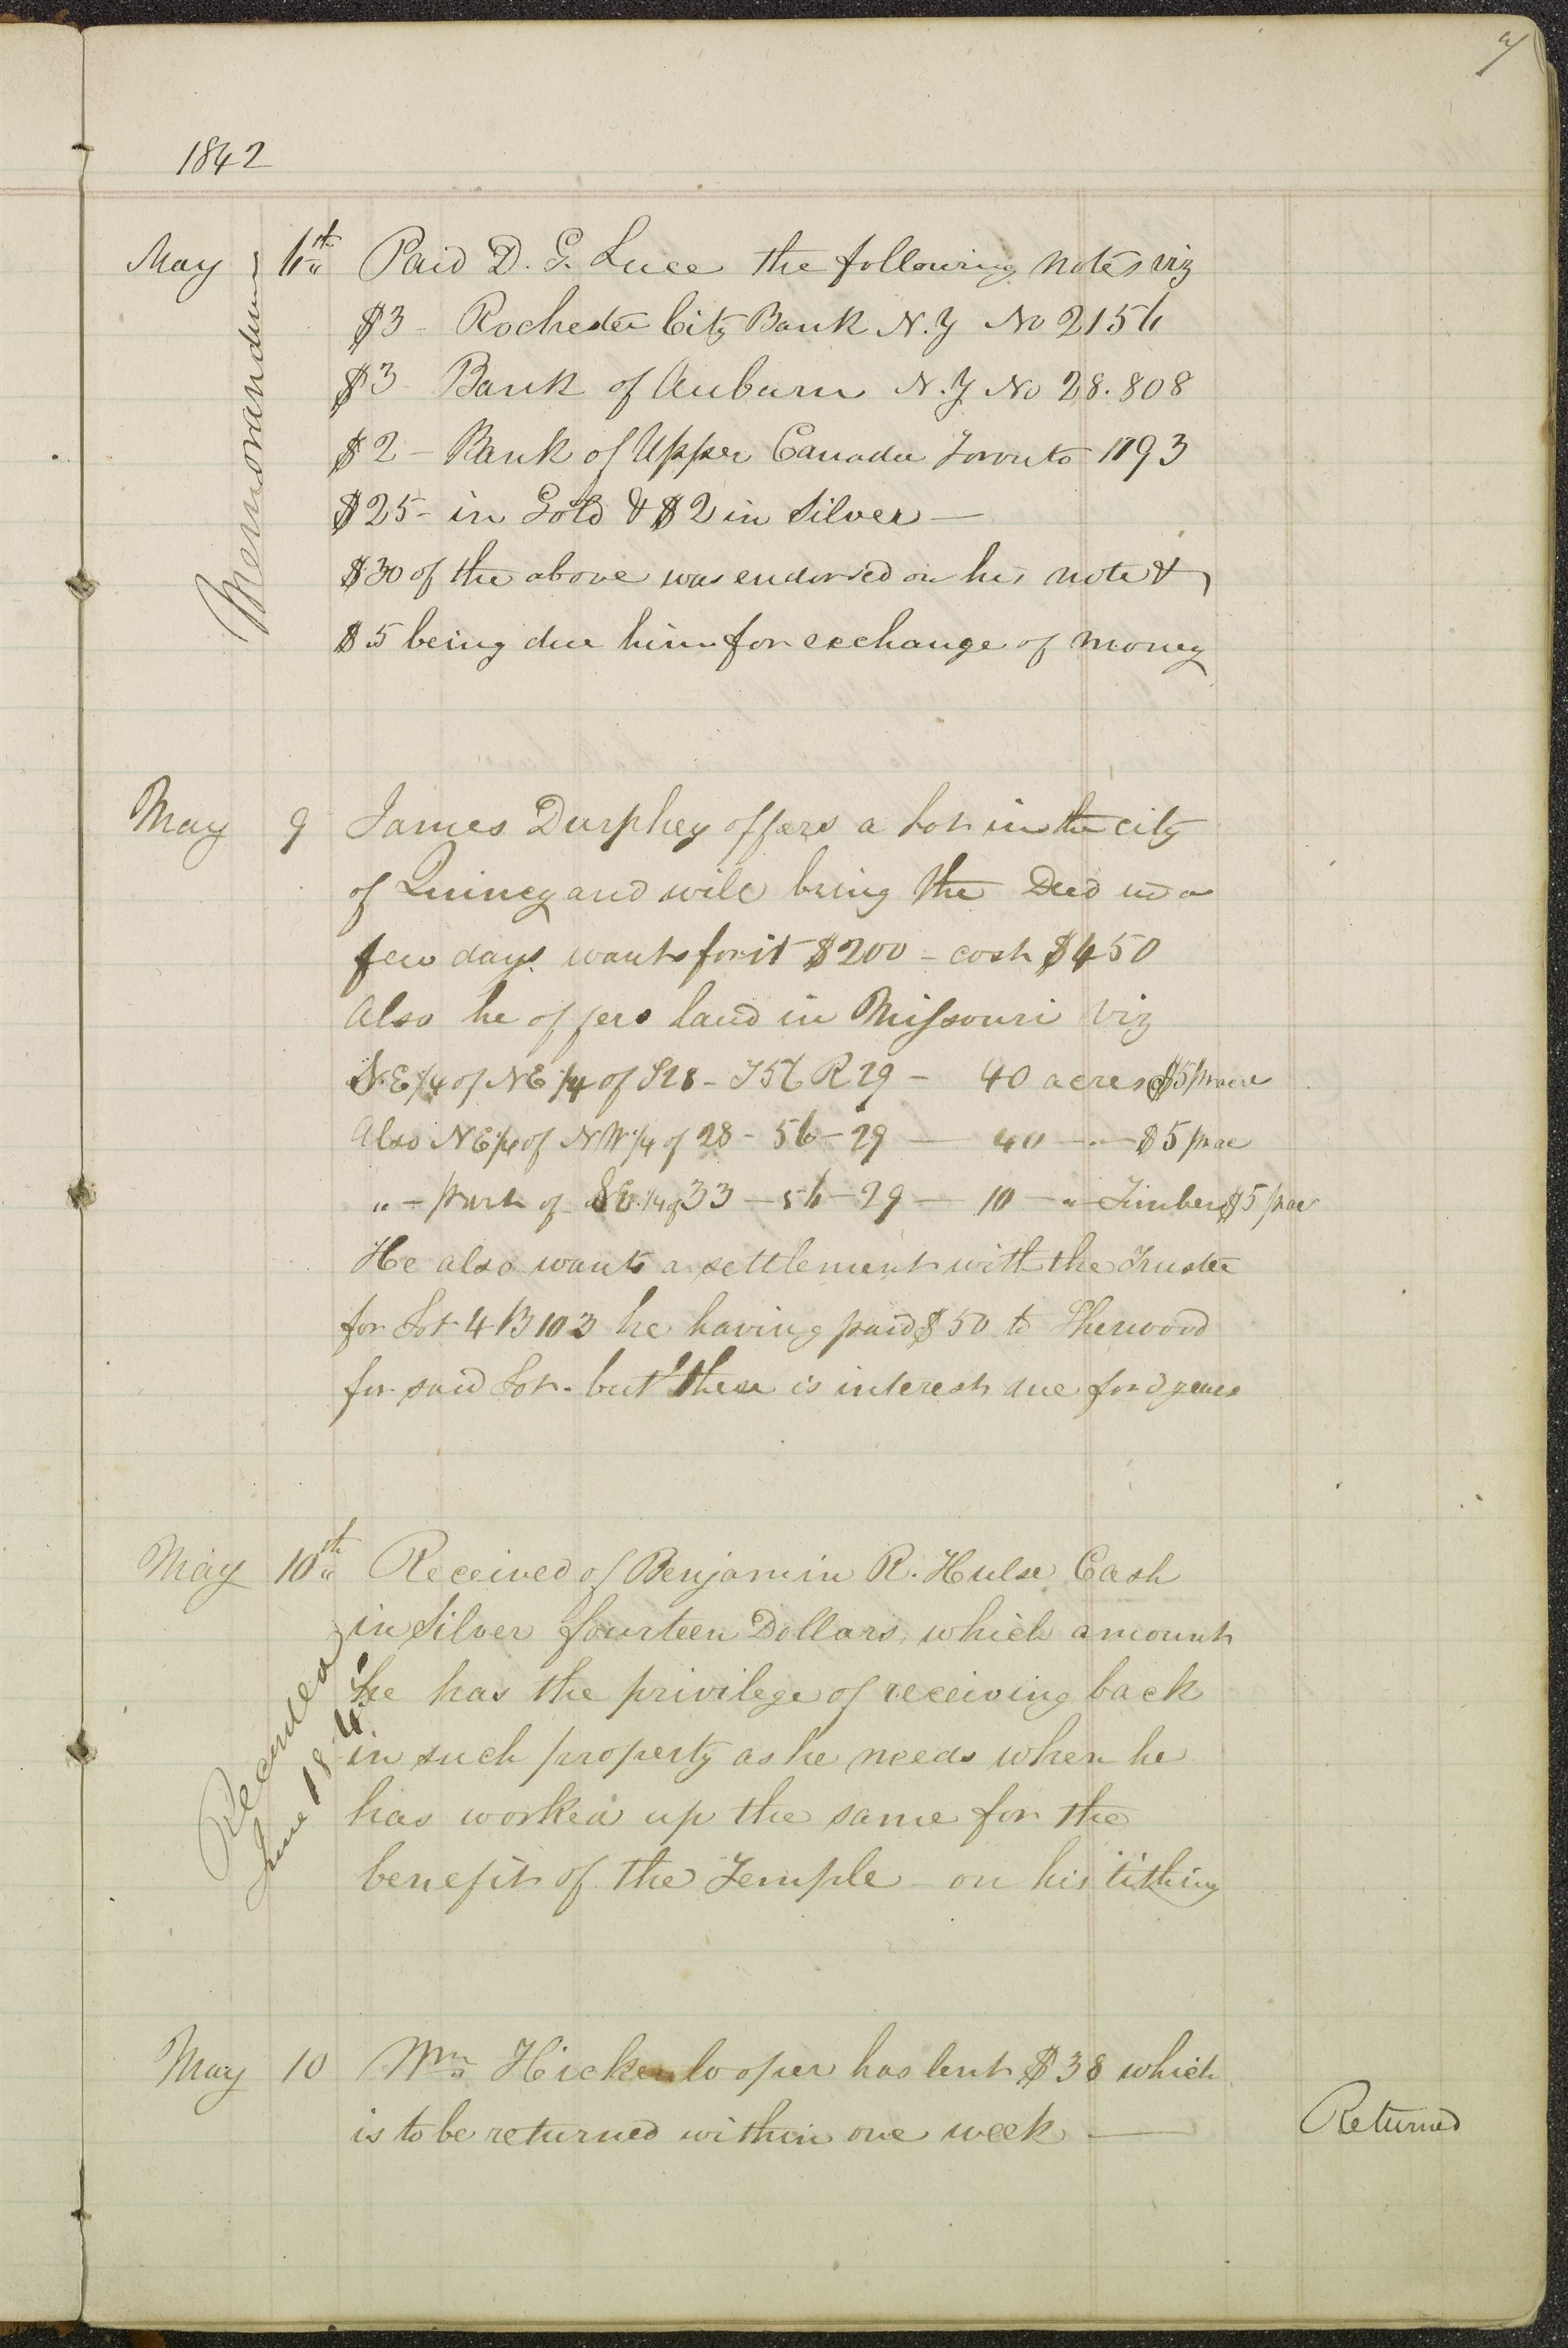 1842
Memorandum
May 6th Paid D. G. Luce the following notes viz
$3 - Rochester City Bank N.Y No 2156
$3 - Bank of Auburn N.Y No 28.808
$2 - Bank of Upper Canada Toronto 1193
$25 - in Gold & $2 in Silver —
$30 of the above was endorsed on his note &
$5 being due him for exchange of money
May 9 James Durphey offers a Lot in the city
of Quincy and will bring the Deed in a
few days. wants for it $200 - cost $450
Also he offers land in Missouri viz
N.E 1/4 of NE 1/4 of S28 - T56 R29 - 40 acres $5 pr acre
Also N E 1/4 of N W 1/4 of 28 - 56 - 29 — 40 — " — $5 pr ac
" - part of 1/4 of 33 — 56 - 29 — 10 — " - Timber $5 pr ac
He also wants a settlement with the Trustee
for Lot 4 B 103 he having paid $50 to Sherwood
for said Lot. but there is interest due for 3 years
May 10th Received of Benjamin R. Hulse Cash
in Silver fourteen Dollars, which amount
he has the privilege of receiving back
in such property as he needs when he
has worked up the same for the
benefit of the Temple - on his tithing
Recorded
June 18
May 10 Wm Hickenlooper has lent $38 which
is to be returned within one week — Returned